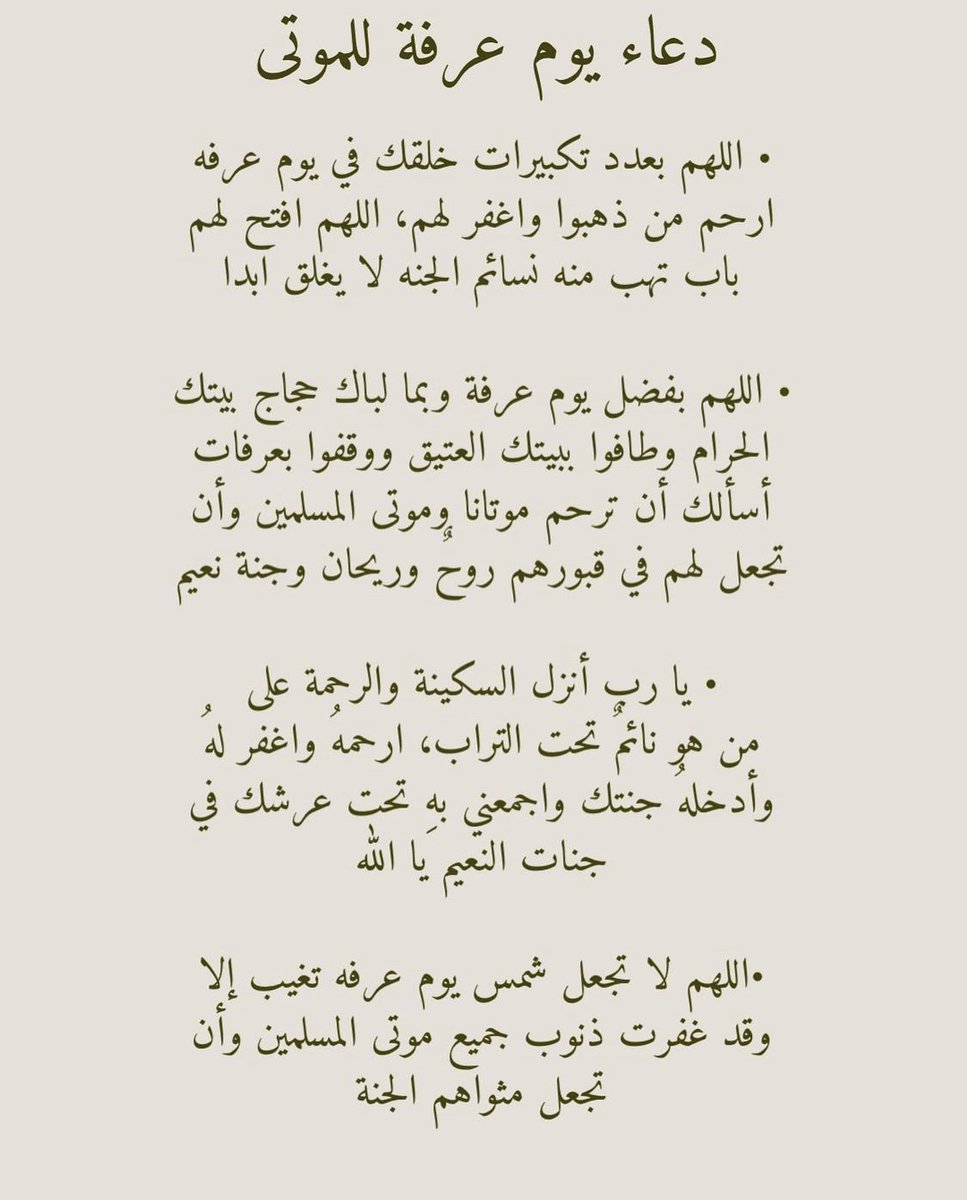 دعاء يوم عرفة للموتى
• اللهم بعدد تكبيرات خلقك في يوم عرفه
ارحم من ذهبوا واغفر لهم، اللهم افتح لهم
باب تهب منه نسائم الجنه لا يغلق ابدا
• اللهم بفضل يوم عرفة وبما لباك حجاج بيتك
الحرام وطافوا ببيتك العتيق ووقفوا بعرفات
أسألك أن ترحم موتانا وموتى المسلمين وأن
تجعل لهم في قبورهم روحٌ وريحان وجنة نعيم
• يا رب أنزل السكينة والرحمة على
من هو نائمٌ تحت التراب، ارحمهُ واغفر لهُ
وأدخلهُ جنتك واجمعني بهِ تحت عرشك في
جنات النعيم يَا الله
•اللهم لا تجعل شمس يوم عرفه تغيب إلا
وقد غفرت ذنوب جميع موتى المسلمين وأن
تجعل مثواهم الجنة